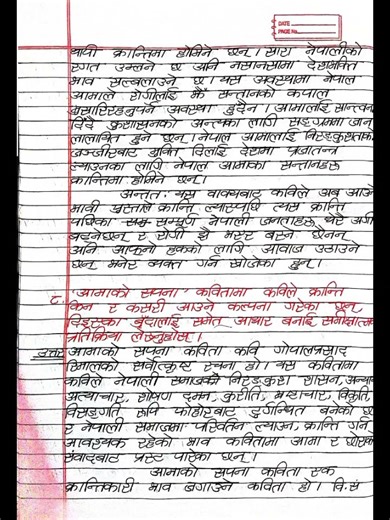 DATE
PAGE No.
यायी क्रान्तिमा होमिने छन् । सारा नेपालीको
रगत उम्लने छ अनि नसानसामा देशभक्ति
भाव सल्बलाउने छ । यस अवस्थामा नेपाल
आमाले रोगीलाई झैं सन्तानको कपाल
मुसारिरहनुपर्ने अवस्था हुदैन । आमालाई सान्त्वना
दिँदै कुशासनको अन्त्यका लागि सङ्ग्राममा जान
लालायित हुने छन् । नेपाल आमालाई निरङ्कुशताको
जञ्जीरबाट मुक्ति दिलाई देशमा प्रजातन्त्र
ल्याउनका लागि नेपाल आमाका सन्तानहरू
क्रान्तिमा होमिने छन् ।
अन्तत: यस वाक्यबाट कविले अब आउने
भावी पुस्ताले क्रान्ति ल्याएपछि त्यस क्रान्ति
पछिका सम्पूर्ण नेपाली जनताहरू धेरै अगि
बढ्नेछन् र रोगी झैं मसर बस्ने छैनन्
अनि आफ्नो हकको लागि आवाज उठाउने
छन् भनेर व्यक्त गर्न खोजेका हुन् ।
८. 'आमाको सपना' कवितामा कविले क्रान्ति
किन र कसरी आउने कल्पना गरेका छन्
दिइएका बुँदालाई समेत आधार बनाई समीक्षात्मक
प्रतिक्रिया लेख्नुहोस् ।
उत्तर आमाको सपना कविता कवि गोपालप्रसाद
रिमालको सर्वोत्कृष्ट रचना हो । यस कवितामा
कविले नेपाली समाजको निरङ्कुश शासन, अन्याय
अत्याचार, शोषण दमन, कुरीति, भ्रष्टाचार, विकृति,
विसङ्गति रूपी फोहोरबाट दुर्गन्धित बनेको छ
र नेपाली समाजमा परिवर्तन ल्याउन, क्रान्ति गर्न
आवश्यक रहेको भाव कवितामा आमा र छोराको
संवादबाट प्रस्ट पारेका छन् ।
आमाको सपना कविता एक
क्रान्तिकारी भाव जगाउने कविता हो । वि.सं